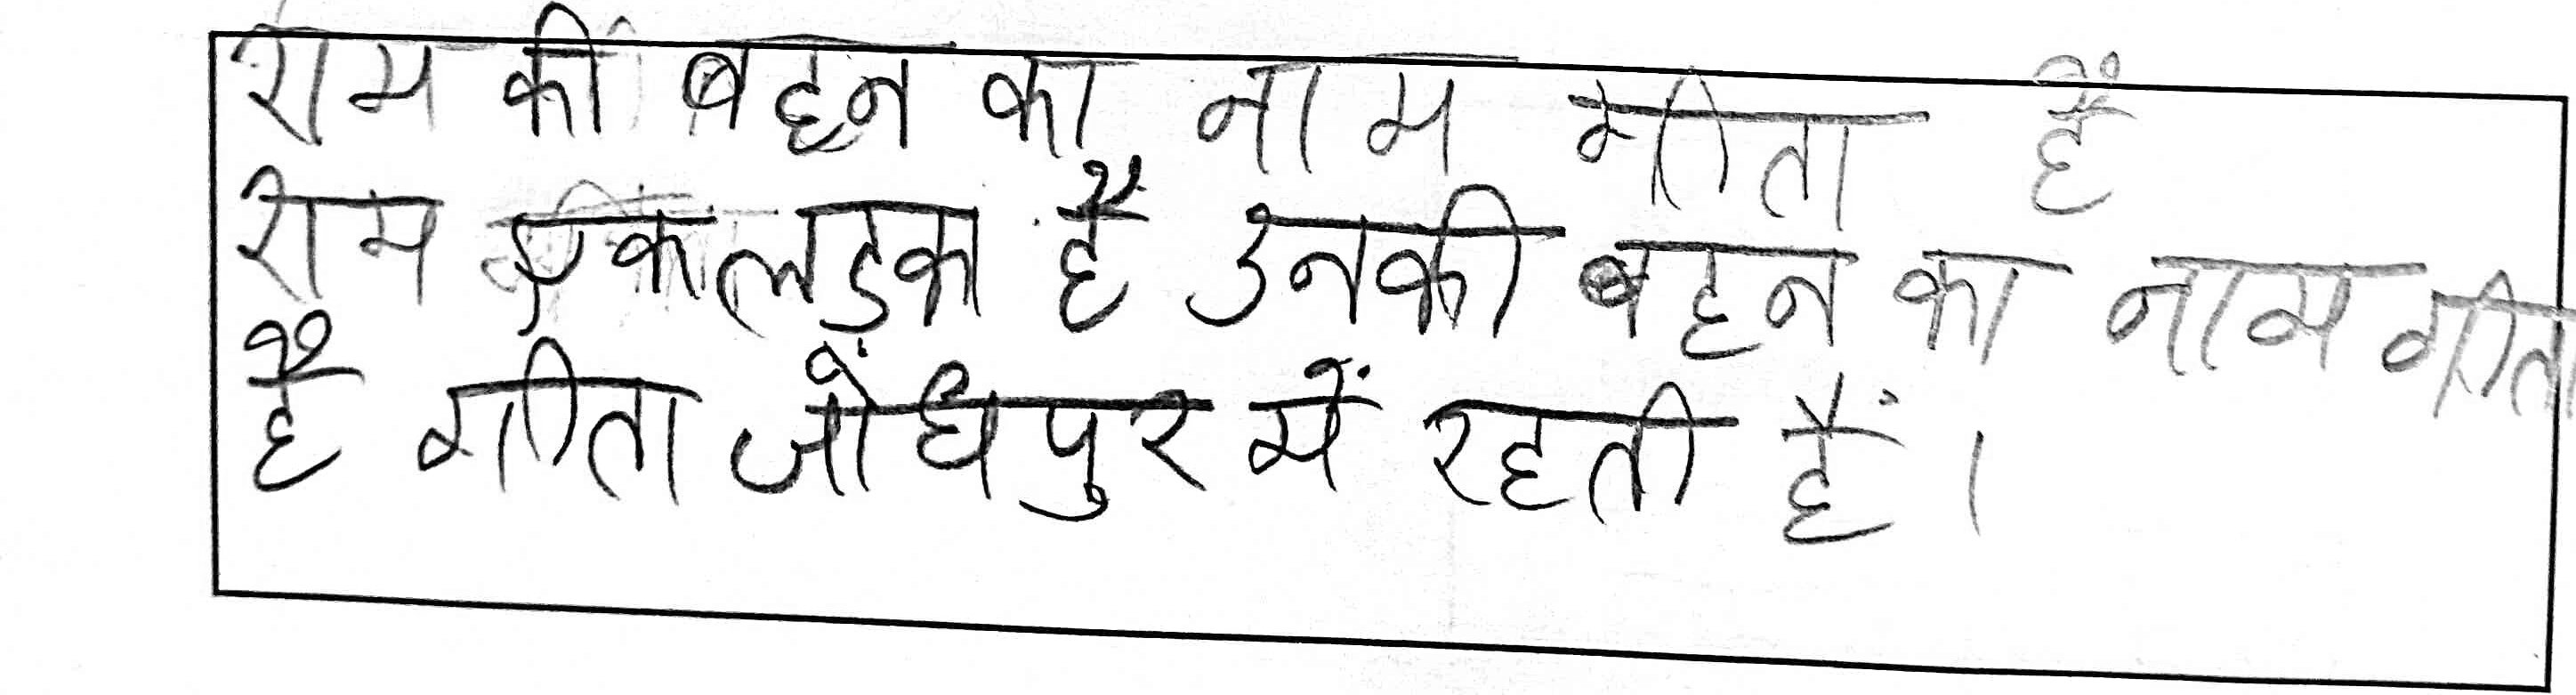 राम की बहन का नाम गीता हैं
राम एक लड़का है उनकी बहन का नाम गीता
है गीता जोधपुर में रहती हैं।